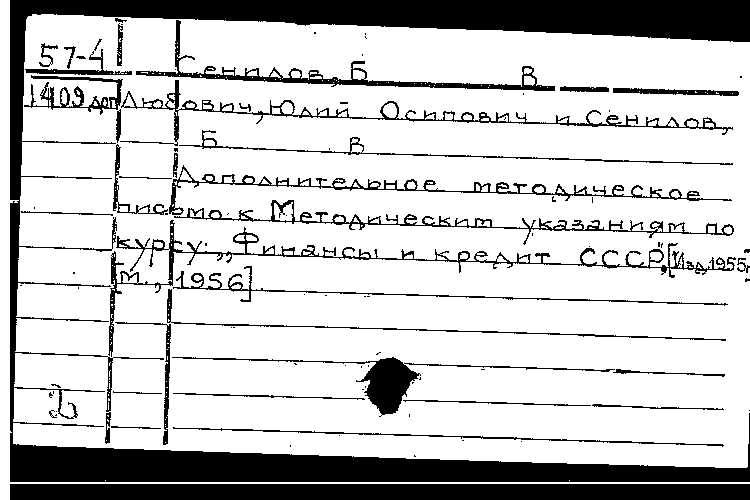 57-4 Сенилов, Б В
1409 доп Любович, Юлий Осипович и Сенилов,
Б В
Дополнительное методическое
письмо к Методическим указаниям по
курсу: „Финансы и кредит СССР", [Изд. 1955г
[М., 1956]
2